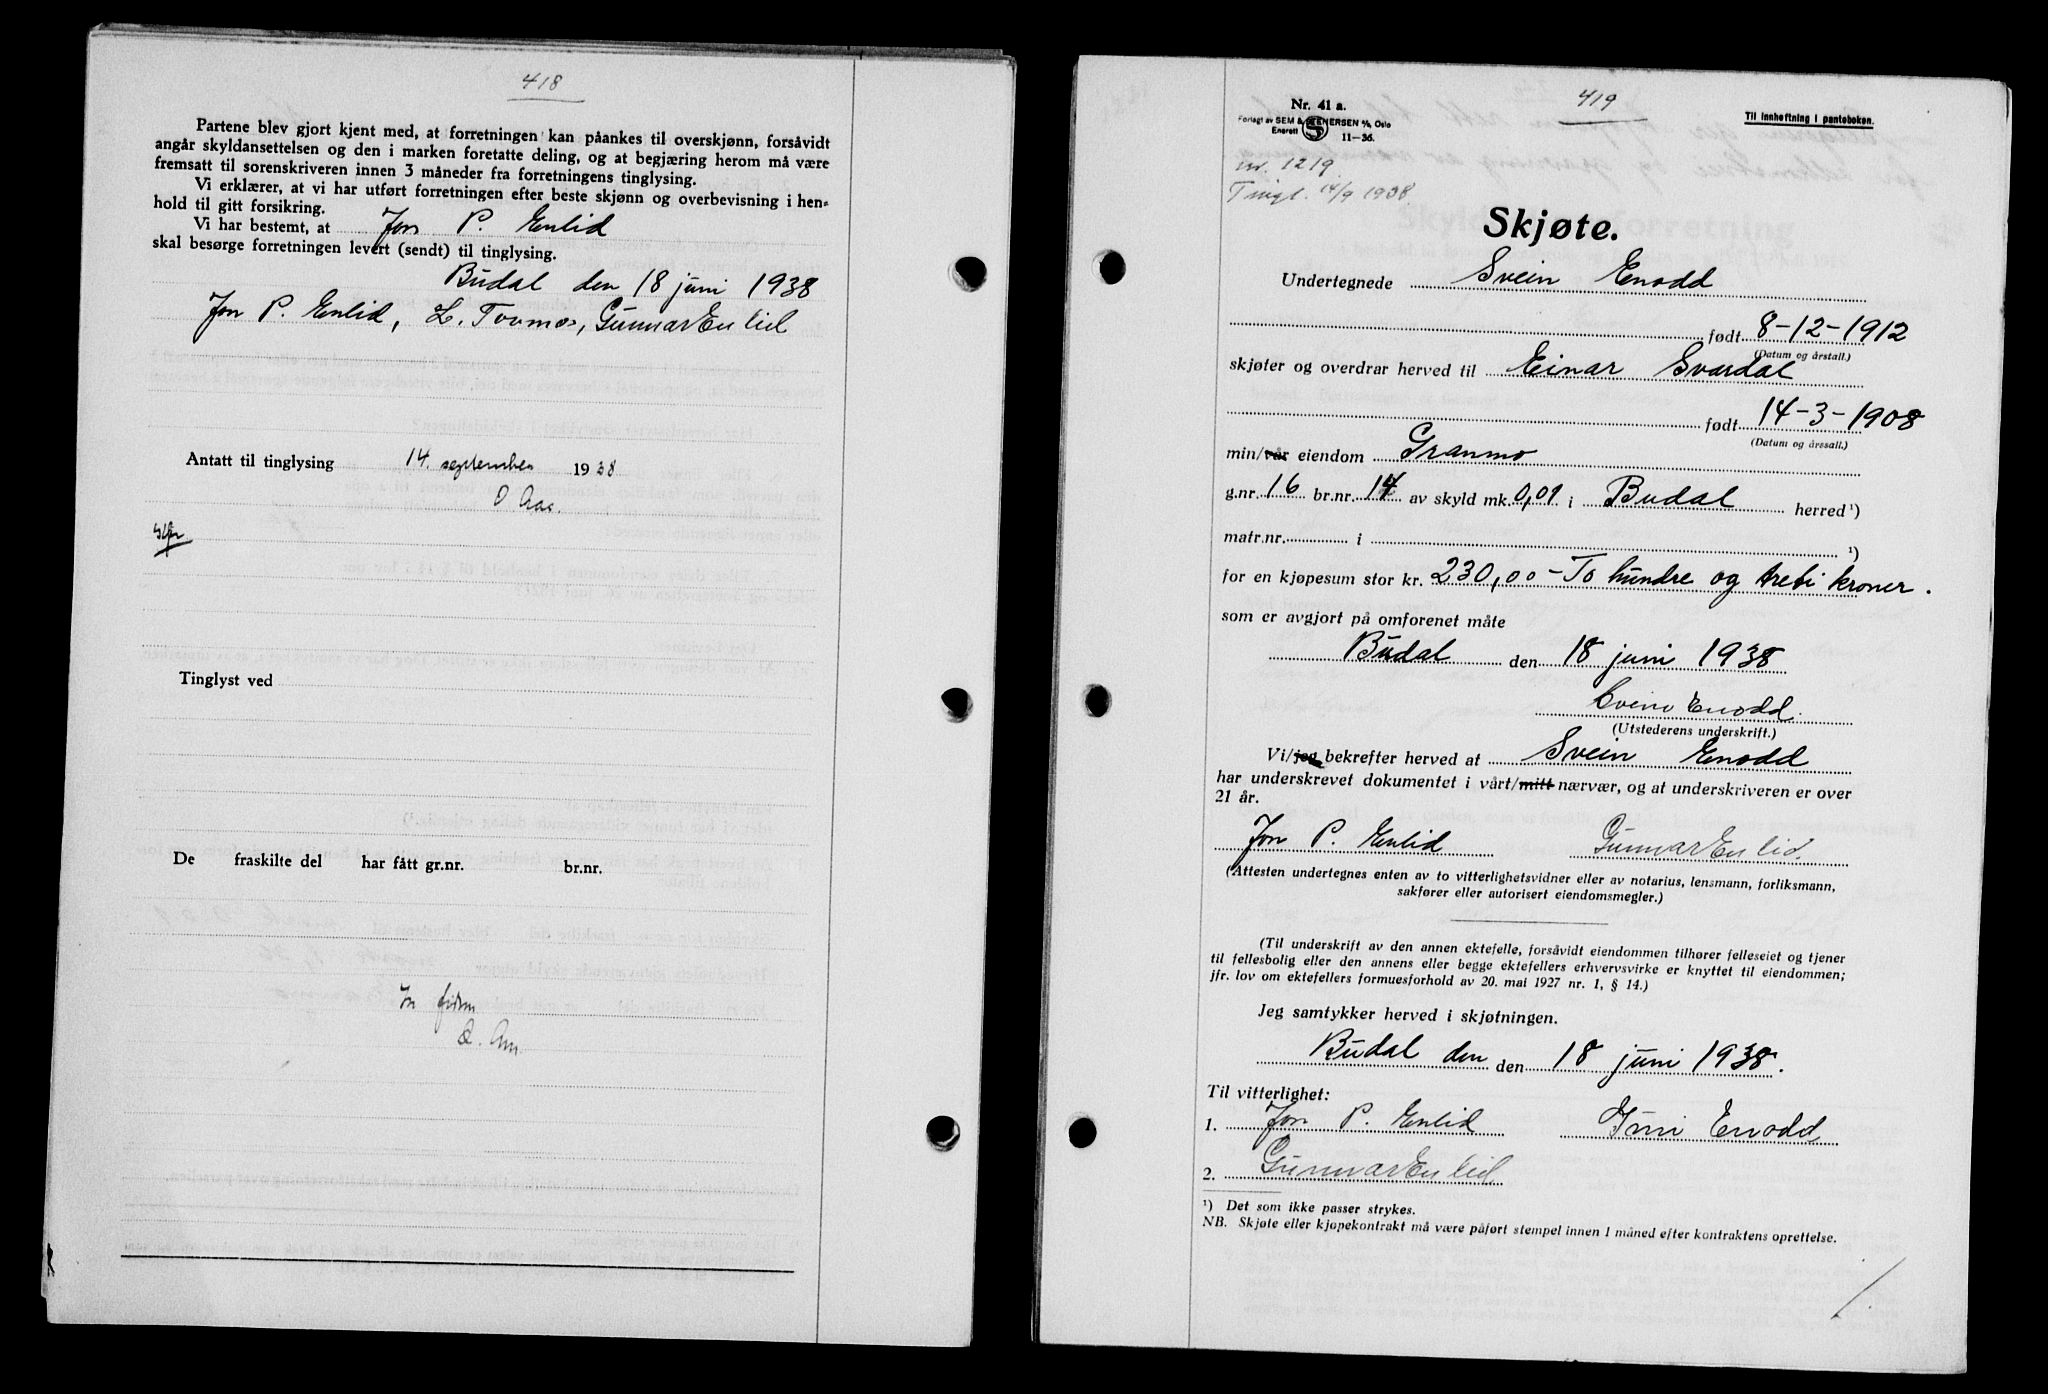 418
Partene blev gjort kjent med, at forretningen kan påankes til overskjønn, forsåvidt
angår skyldansettelsen og den i marken foretatte deling, og at begjæring herom må være
fremsatt til sorenskriveren innen 3 måneder fra forretningens tinglysing.
Vi erklærer, at vi har utført forretningen efter beste skjønn og overbevisning i hen-
hold til gitt forsikring.
Vi har bestemt, at Jon P. Enlid
skal besørge forretningen levert (sendt) til tinglysing.
Budal den 18 juni 1938
Jon P. Enlid, Gunnar Enlid
Antatt til tinglysing 14. september 1938
O Aas.
Tinglyst ved
De fraskilte del har fått gr.nr. br.nr.
419
Nr. 41 a.
Til innheftning i panteboken.
Forlagt av SEM & STENERSEN A/S, Oslo
Enerett S 11-36.
nr. 1219
Tingl. 14/9 1938.
Skjøte.
Undertegnede Svein Enodd
født 8-12-1912
(Datum og årstall.)
skjøter og overdrar herved til Einar Svardal
født 14-3-1908
(Datum og årssall.)
min/vår eiendom Granmo
g.nr. 16 br.nr. 14 av skyld mk. 0,01 i Budal herred ¹)
matr.nr. i ¹)
for en kjøpesum stor kr. 230,00 - To hundre og treti kroner.
som er avgjort på omforenet måte
Budal den 18 juni 1938
Svein Enodd.
(Utstederens underskrift.)
Vi/jeg bekrefter herved at Svein Enodd
har underskrevet dokumentet i vårt/mitt nærvær, og at underskriveren er over
21 år.
Jon P. Enlid Gunnar Enlid.
(Attesten undertegnes enten av to vitterlighetsvidner eller av notarius, lensmann, forliksmann,
sakfører eller autorisert eiendomsmegler.)
(Til underskrift av den annen ektefelle, forsåvidt eiendommen tilhører felleseiet og tjener
til fellesbolig eller den annens eller begge ektefellers erhvervsvirke er knyttet til eiendommen;
jfr. lov om ektefellers formuesforhold av 20. mai 1927 nr. 1, § 14.)
Jeg samtykker herved i skjøtningen.
Budal den den 18 juni 1938.
Til vitterlighet:
1. Jon P. Enlid Enodd
2. Gunnar Enlid.
¹) Det som ikke passer strykes.
NB. Skjøte eller kjøpekontrakt må være påført stempel innen 1 måned efter kontraktens oprettelse.